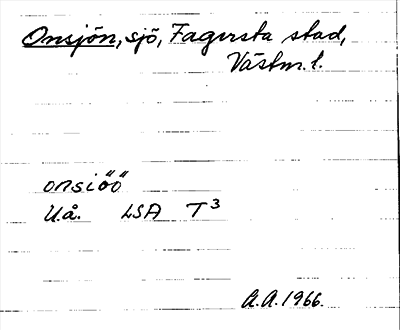 Onsjön, sjö, Fagersta stad,
Västm. l.
onsiöö
U.å. LSA T³
A.A. 1966.